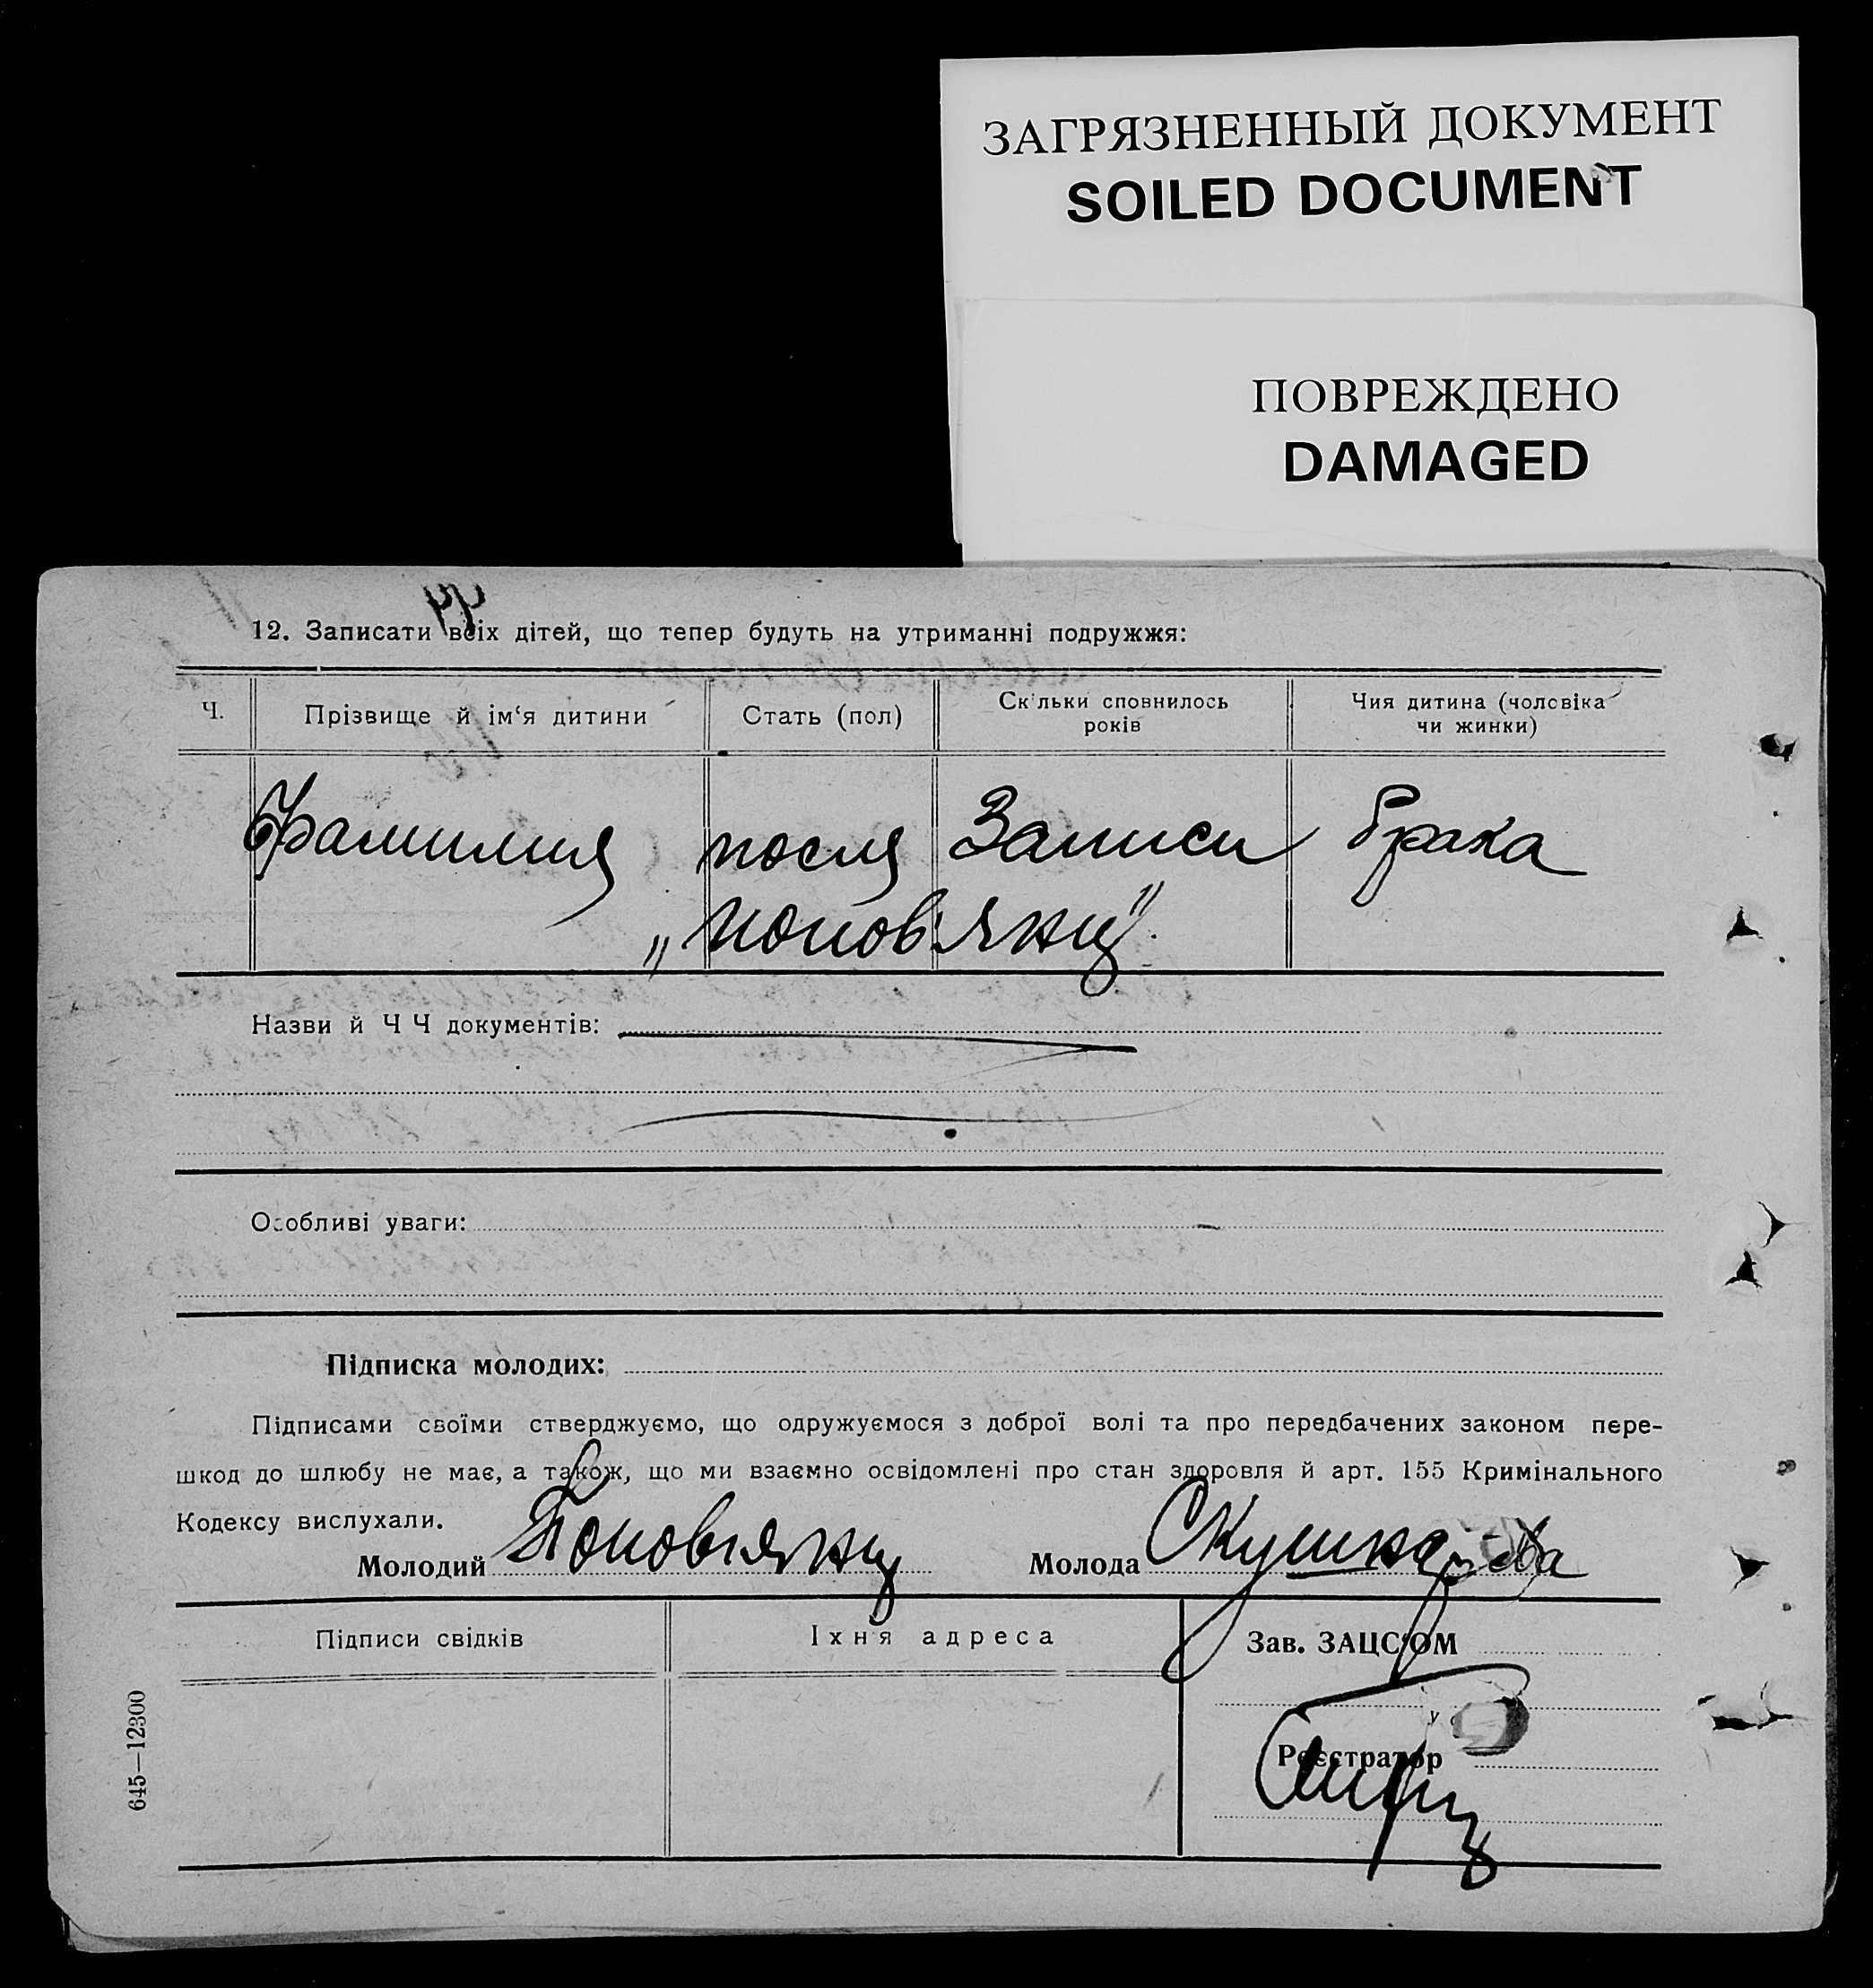 ЗАГРЯЗНЕННЫЙ ДОКУМЕНТ
SOILED DOCUMENT
ПОВРЕЖДЕНО
DAMAGED
12. Записати всіх дітей, що тепер будуть на утриманні подружжя:
Ч. Прізвище й ім‘я дитини Стать (пол) Скільки сповнилось років Чия дитина (чоловіка чи жинки)
Фамилия после Записи брака
„Попов'янц"
Назви й ЧЧ документів:
Особливі уваги:
Підписка молодих:
Підписами своїми стверджуємо, що одружуємося з доброї волі та про передбачених законом пере-
шкод до шлюбу не має, а також, що ми взаємно освідомлені про стан здоровля й арт. 155 Кримінального
Кодексу вислухали.
Молодий Попов'янц Молода
Підписи свідків Їхня адреса Зав. ЗАЦС‘ОМ
Реєстратор
645—12300